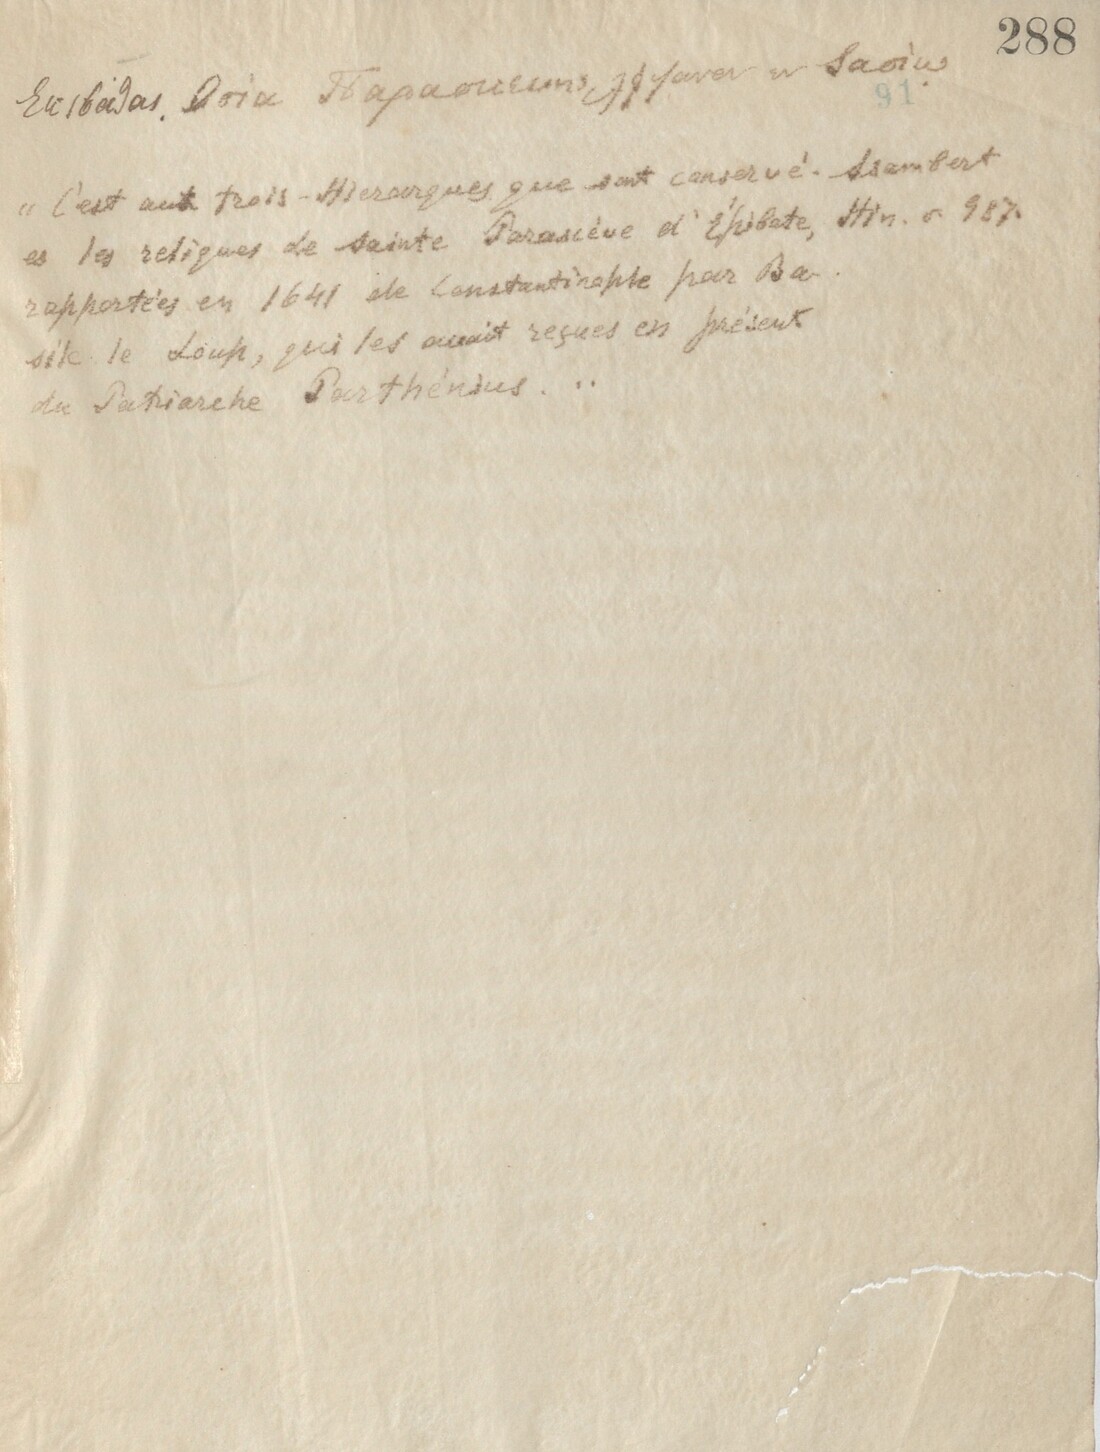 288
Επιβάδαι. Οσία Παρασκευη,
91
"C'est aux trois-Hierarques que sont conservé-
es les reliques de sainte Parascève d'Épibate,
Isambert
Itin. σ 987.
rapportées en 1641 de Constantinople par Ba-
sile le Loup, qui les avait reçues en présent
du Patriarche Parthénius."